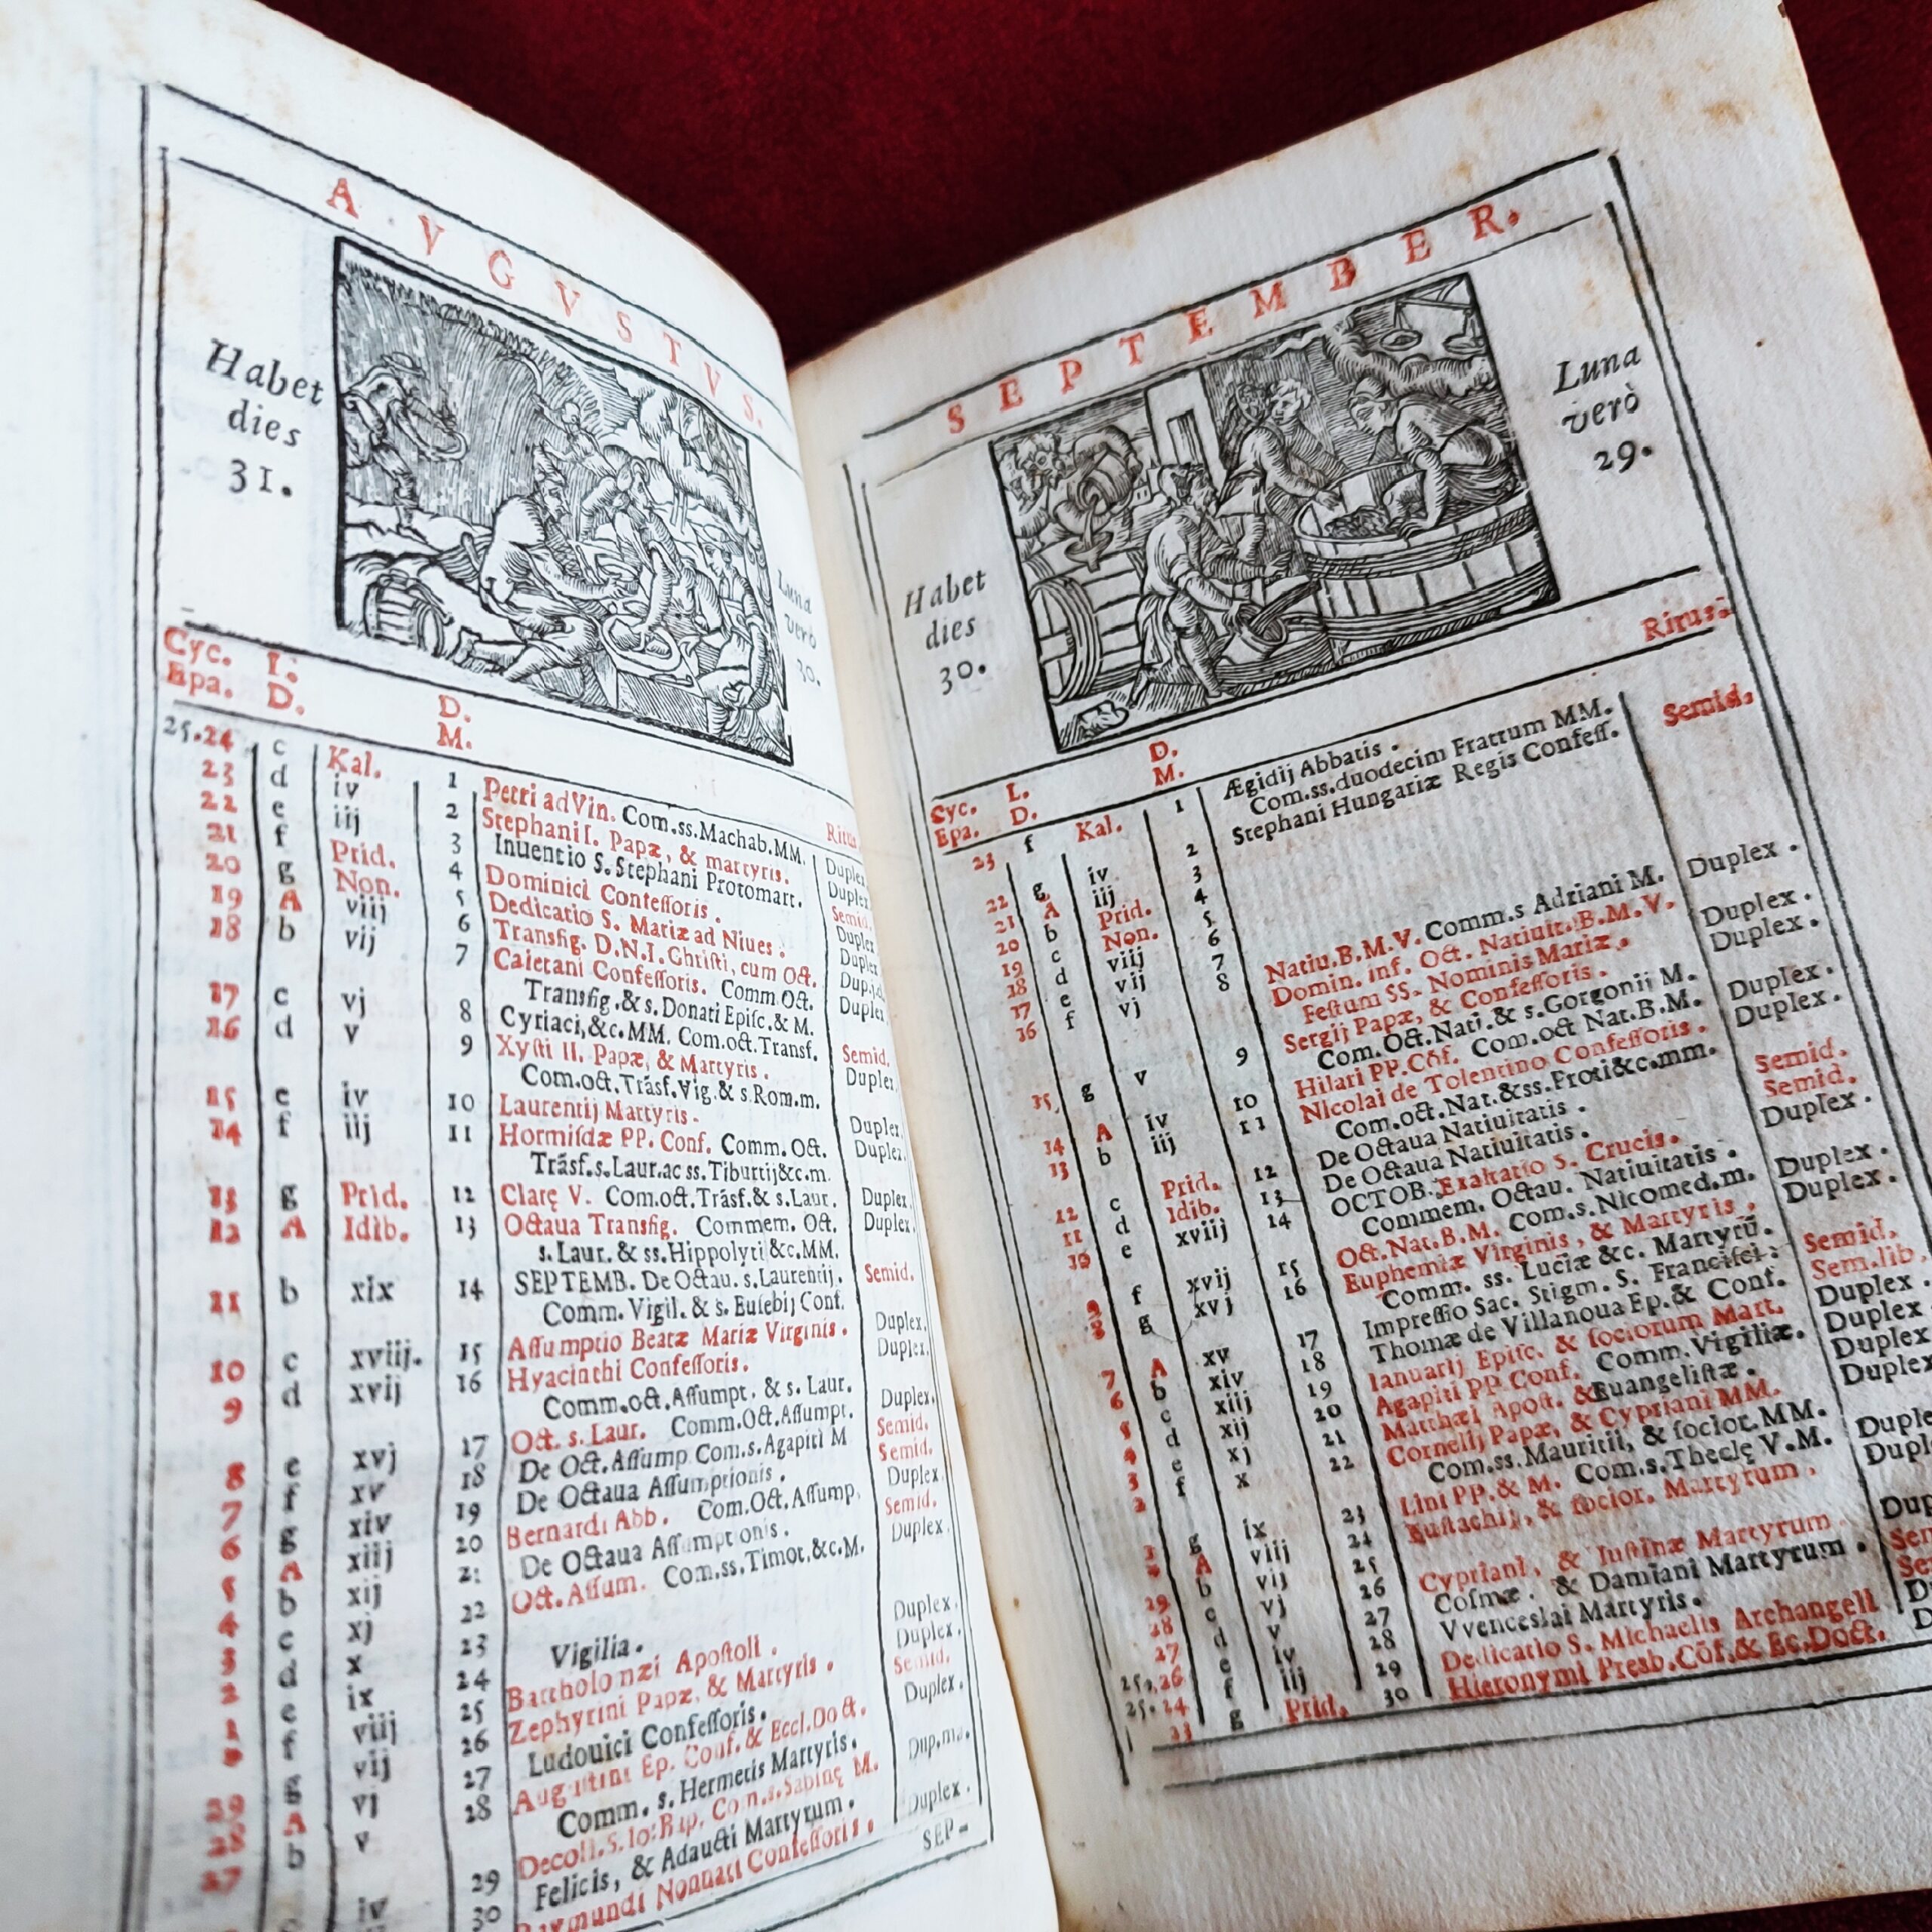 AVGVSTVS.
Habet
dies
31.
Luna
verò
30.
Cyc. L. D. Ritus
Epa. D. M.
25.24 c Kal. 1 Petri ad Vin. Com.ss.Machab.MM. Duplex
23 d iv 2 Stephani I. Papæ, & martyris. Duplex
22 e iij 3 Inuentio S.Stephani Protomart. Semid.
21 f Prid. 4 Dominici Confeſſoris. Duplex
20 g Non. 5 Dedicatio S. Mariæ ad Niues. Duplex
19 A viij 6 Transfig. D.N.I.Chriſti, cum Oct.
18 b vij 7 Caietani Confeſſoris. Comm.Oct. Duplex
Transfig.& s.Donati Epiſc.& M.
17 c vj 8 Cyriaci,&c.MM. Com.oct.Transf. Semid.
16 d v 9 Xyſti II. Papæ, & Martyris. Duplex
Com.oct.Trāsf.Vig.& s.Rom.m.
15 e iv 10 Laurentij Martyris. Duplex.
14 f iij 11 Hormiſdæ PP. Conf. Comm. Oct. Duplex.
Trāsf.s.Laur.ac ss.Tiburtij&c.m.
13 g Prid. 12 Clarę V. Com.oct.Trāsf.& s.Laur. Duplex.
12 A Idib. 13 Octaua Transfig. Commem. Oct. Duplex.
s. Laur. & ss.Hippolyti &c.MM.
11 b xix 14 SEPTEMB. De Octau. s.Laurentij. Semid.
Comm. Vigil. & s. Euſebij Conf.
10 c xviij. 15 Aſſumptio Beatæ Mariæ Virginis. Duplex.
9 d xvij 16 Hyacinthi Confeſſoris. Duplex.
Comm.oct.Aſſumpt. & s. Laur.
8 e xvj 17 Oct. s. Laur. Comm.Oct.Aſſumpt. Duplex.
7 f xv 18 De Oct.Aſſump Com.s.Agapiti M Semid.
6 g xiv 19 De Octaua Aſſumptionis. Semid.
5 A xiij 20 Bernardi Abb. Com.Oct.Aſſump. Duplex
4 b xij 21 De Octaua Aſſumptionis. Semid.
3 c xj 22 Oct.Aſſum. Com.ss.Timot.&c.M. Duplex.
2 d x 23 Vigilia.
1 e ix 24 Bartholomæi Apoſtoli. Duplex.
f viij 25 Zephyrini Papæ, & Martyris. Duplex.
29 g vij 26 Ludouici Confeſſoris. Semid.
28 A vj 27
27 b v 28 Auguſtini Ep. Conf. & Eccl.Doct. Duplex.
Comm. s. Hermetis Martyris.
iv 29 Decoll.S.Io:Bap. Com.s.Sabinę M. Dup.ma.
30 Felicis, & Adaucti Martyrum.
Raymundi Nonnati Confeſſoris. Duplex.
SEP-
SEPTEMBER.
Habet
dies
30.
Luna
verò
29.
Cyc. L. D. Ritus.
Epa. D. M.
23 f Kal. 1 Ægidij Abbatis.
Com.ss.duodecim Fratrum MM.
22 g iv 2 Stephani Hungariæ Regis Confeſſ. Semid.
21 A iij 3
20 b Prid. 4
19 c Non. 5
18 d viij 6
17 e vij 7
16 f vj 8 Natiu.B.M.V. Comm.s Adriani M. Duplex.
Domin. inf. Oct. Natiuit.B.M.V.
Feſtum SS. Nominis Mariæ. Duplex.
15 g v 9 Sergij Papæ, & Confeſſoris. Duplex.
Com.Oct.Nati.& s.Gorgonij M.
14 A iv 10 Hilari PP.Cōf. Com.oct Nat.B.M. Duplex.
13 b iij 11 Nicolai de Tolentino Confeſſoris. Duplex.
Com.oct.Nat.&ss.Proti&c.mm.
12 c Prid. 12 De Octaua Natiuitatis. Semid.
11 d Idib. 13 De Octaua Natiuitatis. Semid.
10 e xviij 14 OCTOB. Exaltatio S. Crucis. Duplex.
Commem. Octau. Natiuitatis.
9 f xvij 15 Oct.Nat.B.M. Com.s.Nicomed.m. Duplex.
8 g xvj 16 Euphemiæ Virginis, & Martyris. Duplex.
Comm. ss. Luciæ &c. Martyrū.
7 A xv 17 Impreſſio Sac. Stigm. S. Franciſci. Semid.
6 b xiv 18 Thomæ de Villanoua Ep.& Conf. Sem.lib.
5 c xiij 19 Ianuarij Epiſc. & ſociorum Mart. Duplex.
4 d xij 20 Agapiti PP Conf. Comm.Vigiliæ. Duplex
3 e xj 21 Matthæi Apoſt. & Euangeliſtæ. Duplex
2 f x 22 Cornelij Papæ, & Cypriani MM. Duplex
Com.ss. Mauritii, & ſocior.MM.
g ix 23 Lini PP.& M. Com.s.Theclę V.M.
A viij 24 Euſtachij, & ſocior. Martyrum.
29 b vij 25
28 c vj 26 Cypriani, & Iuſtinæ Martyrum.
27 d v 27 Coſmæ, & Damiani Martyrum.
25.26 e iv 28 VVenceslai Martyris.
25.24 f iij 29 Dedicatio S. Michaelis Archangeli
23 g Prid. 30 Hieronymi Presb.Cōf.& Ec.Doct.